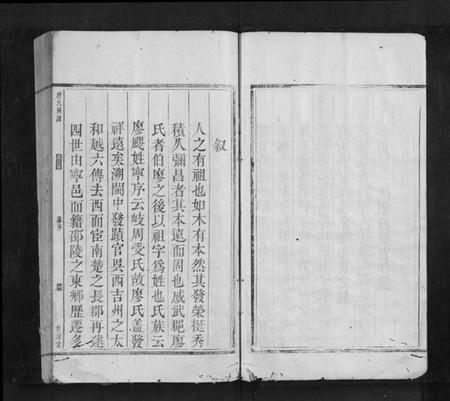 叙
人之有祖也如木有本然其發榮挺秀
積久彌昌者其本遠而固也威武羆廖
氏者伯廖之後以祖字爲姓也氏族云
廖颺姓寧序云岐周受氏故廖氏蓋發
祥遠矣溯閩中發蹟官吳西吉州之太
和越六傳去西而宦南楚之長郡再逮
四世由寧邑而籍邵陵之東鄉歷遷多
廖氏族譜